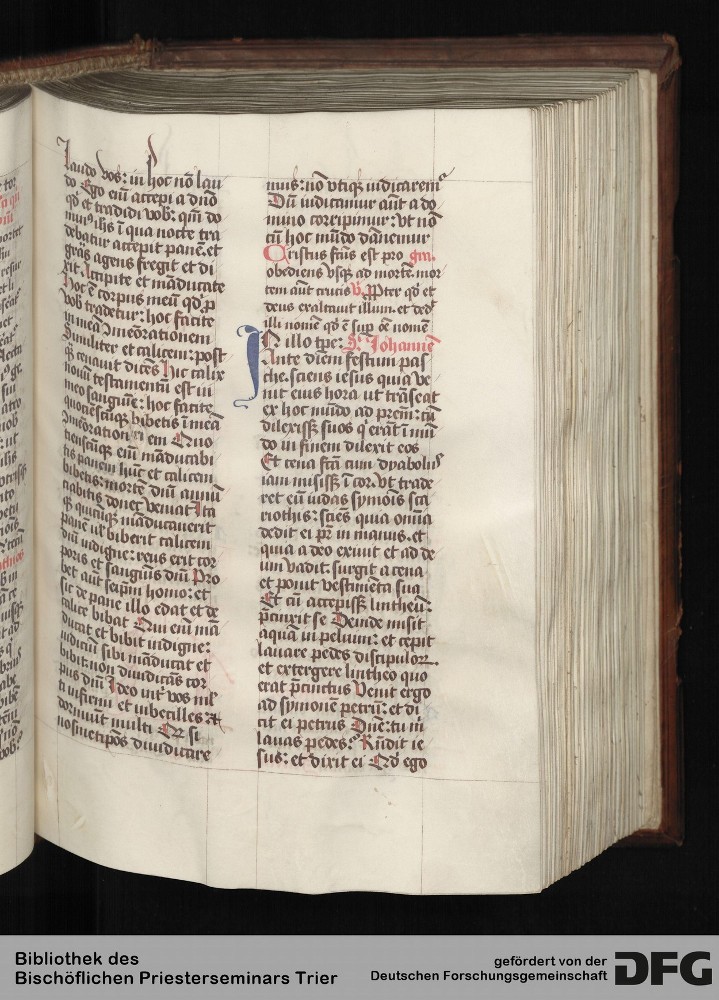 laudo vos: in hoc nō lau
do Ego em̄ accepi a dn̄o
qd et tradidi vob: qm̄ do
mu9 ihs ī qua nocte tra
debatur accepit panē. et
grās agens fregit et di
xit. Accipite et māducate
hoc ē corpus meū qd p
vob tradetur: hoc facite
in meā ɔmeōrationem
Similiter et calicem: post
qͣ cenauit dicēs hic calix
nouū testamentū est in
meo sanguine: hoc facite
quotiēscūqȝ bibetis ī meā
ɔmeōrationem Quo
tienscūqȝ em̄ māducabi
tis panem hūc et calicem
bibetis: mortē dn̄i annū
ciabitis donec veniat Ita
qȝ quicūqȝ māducauerit
panē ul biberit calicem
dn̄i indigne: reus erit cor
poris et sanguīs dn̄i Pro
bet aūt seipm̄ homo: et
sic de pane illo edat et de
calice bibat Qui em̄ mā
ducat et bibit indigne:
iudiciū sibi māducat et
bibit: non diiudicās cor
pus dn̄i Ideo int vos ml
ti infirmi et imbecilles: et
dormiūt multi Qd si
nosmetipōs diiudicare
mus: nō vtiqȝ iudicaremr
Dū iudicamur aūt a do
mino corripimur: vt nō
cū hoc mūdo dāpnemur
Cristus fcūs est pro gra.
obediens vsqȝ ad mortē. mor
tem aūt crucis v Ppter qd et
deus exaltauit illum. et ded
illi nomē qd ē sup oē nomē
In illo tpe: S. Iohannē
Ante diem festum pas
che. sciens iesus quia ve
nit eius hora ut trāseat
ex hoc mūdo ad prem: cū
dilexisſ suos q erāt ī mū
do in finem dilexit eos
Et cena fcā cum dyabolus
iam misisſ ī cor. vt trade
ret eū iudas symōis sca
riothis: sciēs quia omīa
dedit ei pr in manus. et
quia a deo exiuit et ad de
um vadit: surgit a cena
et ponit vestimēta sua
Et cū accepisſ lintheū:
pcinxit se Deinde misit
aquā in peluim: et cepit
lauare pedes discipuloꝝ
et extergere lintheo quo
erat pcinctus Venit ergo
ad symonē petrū: et di
cit ei petrus Dn̄e: tu m
lauas pedes? Rn̄dit ie
sus: et dixit ei Qd ego
Bibliothek des
Bischöflichen Priesterseminars Trier
gefördert von der
Deutschen Forschungsgemeinschaft
DFG